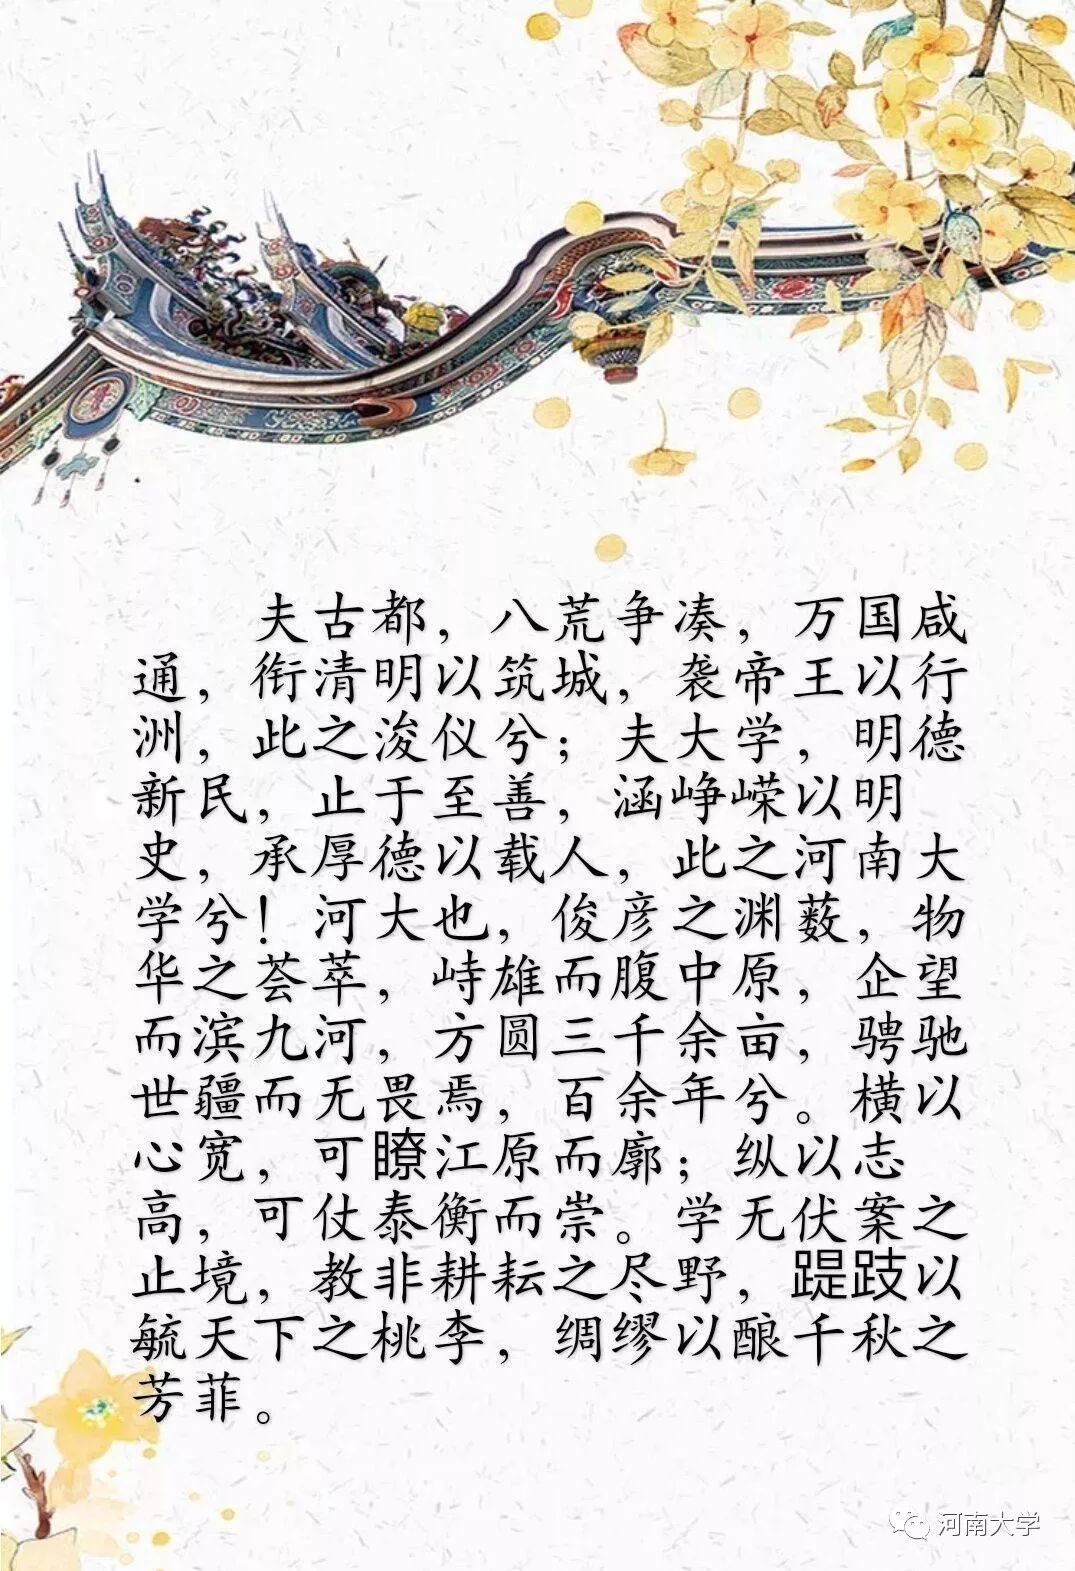 夫古都，八荒争凑，万国咸
通，衔清明以筑城，袭帝王以行
洲，此之浚仪兮；夫大学，明德
新民，止于至善，涵峥嵘以明
史，承厚德以载人，此之河南大
学兮！河大也，俊彦之渊薮，物
华之荟萃，峙雄而腹中原，企望
而滨九河，方圆三千余亩，骋驰
世疆而无畏焉，百余年兮。横以
心宽，可瞭江原而廓；纵以志
高，可仗泰衡而崇。学无伏案之
止境，教非耕耘之尽野，踶跂以
毓天下之桃李，绸缪以酿千秋之
芳菲。
河南大学